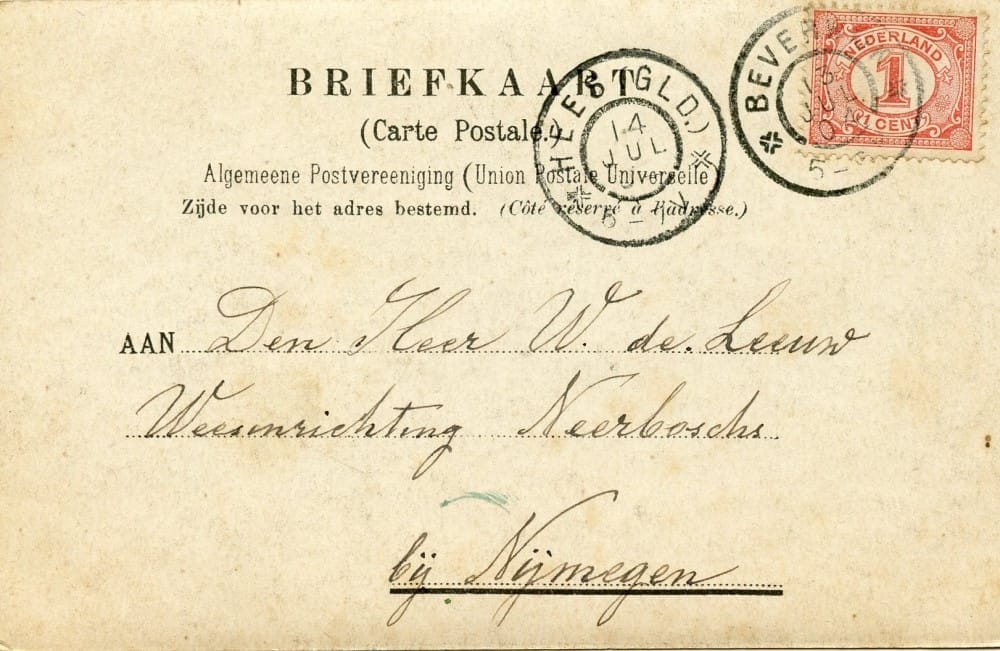 BRIEFKAART
(Carte Postale.)
Algemeene Postvereeniging (Union Postale Universelle)
Zijde voor het adres bestemd. (Côté réservé à l'adresse.)
HEES (GLD.)
14
JUL
BEVER
13
JUL
NEDERLAND
1
1 CENT
AAN Den Heer W. de Leeuw
Weesinrichting Neerbosch.
bij Nijmegen